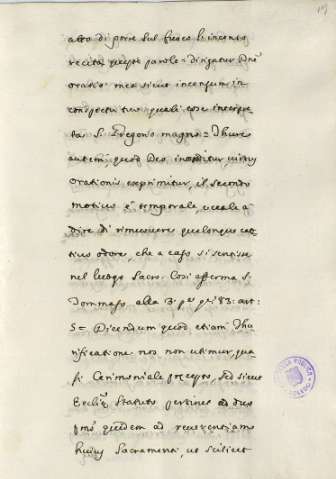 atto di porre sul fuoco l'incenso
recita queste parole = dirigatur Dñe
oratio mea sicut incensum in
conspectu tuo quali cose interpre
ta S. Gregorio magno = Thure
autem, quod Deo incenditur, virtus
orationis exprimitur, il secondo
motivo è temporale, vale a
dire di rimuovere qualunque cat
tivo odore, che a caso si sentisse
nel luogo Sacro. Così afferma S.
Tommaso alla 3: pe qe: 83: art:
5 = Dicendum quod etiam Thu
rificatione nos non utimur, qua
si Cerimoniale precepto, sed sicut
Eccliae Statuto pertinet ad duo
pmo quidem ad reverentiam
huius Sacramenti, ut scilicet